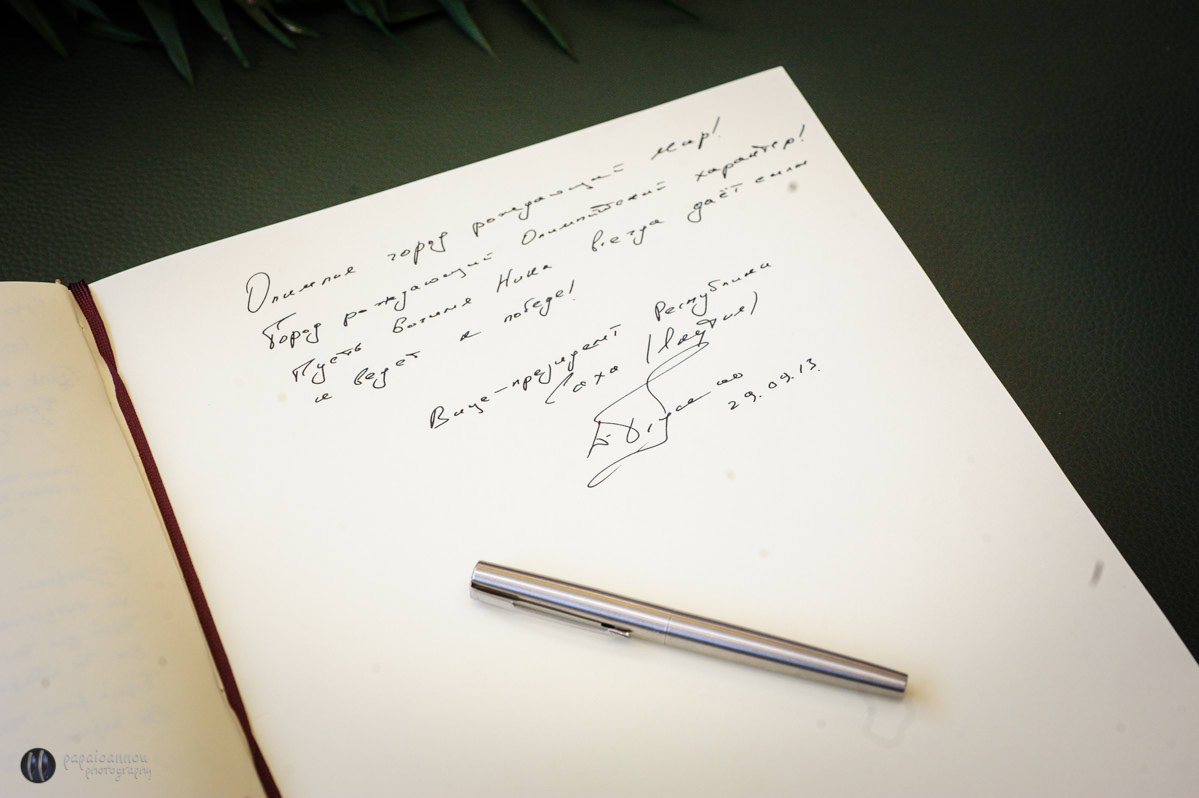 Олимпия город рождающий мир!
Город рождающий Олимпийский характер!
Пусть богиня Ника всегда даёт силы
и ведет к победе!
Вице-президент Республики
Саха (Якутия)
29.09.13.
papaioannou
photography